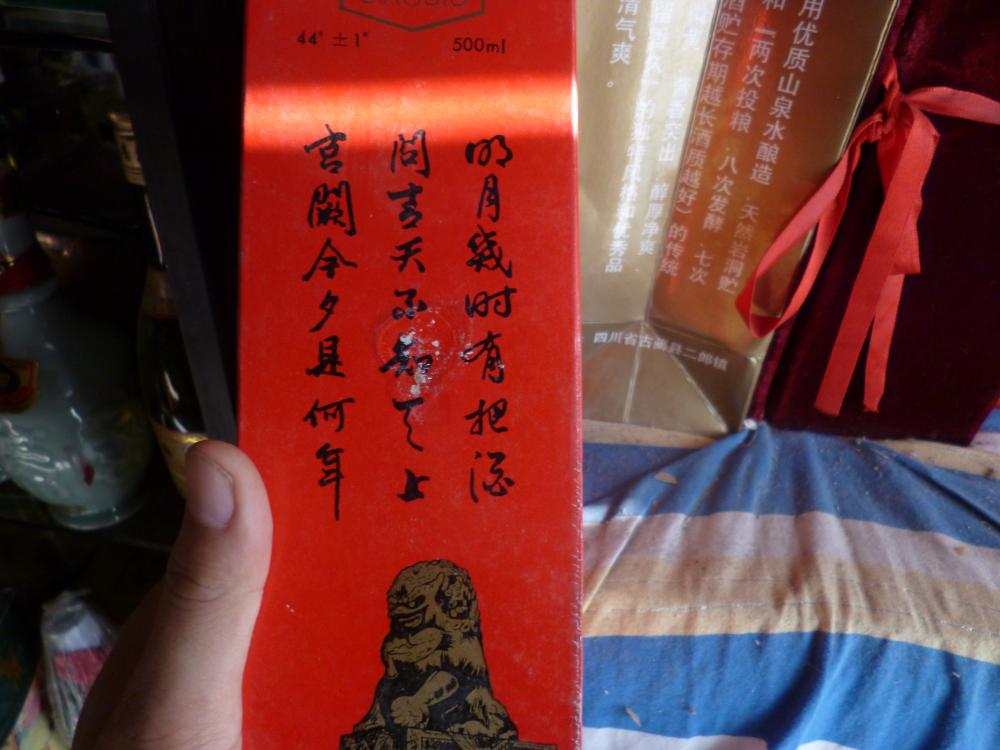 44° ±1°
500ml
明月幾时有把酒
問青天不知天上
宫闕今夕是何年
用优质山泉水酿造、天然岩洞贮
和「两次投粮、八次发酵、七次
酒贮存期越长酒质越好）的传统
酱香突出、醇厚净爽
的独特风格和优秀品
清气爽。
四川省古蔺县二郎镇